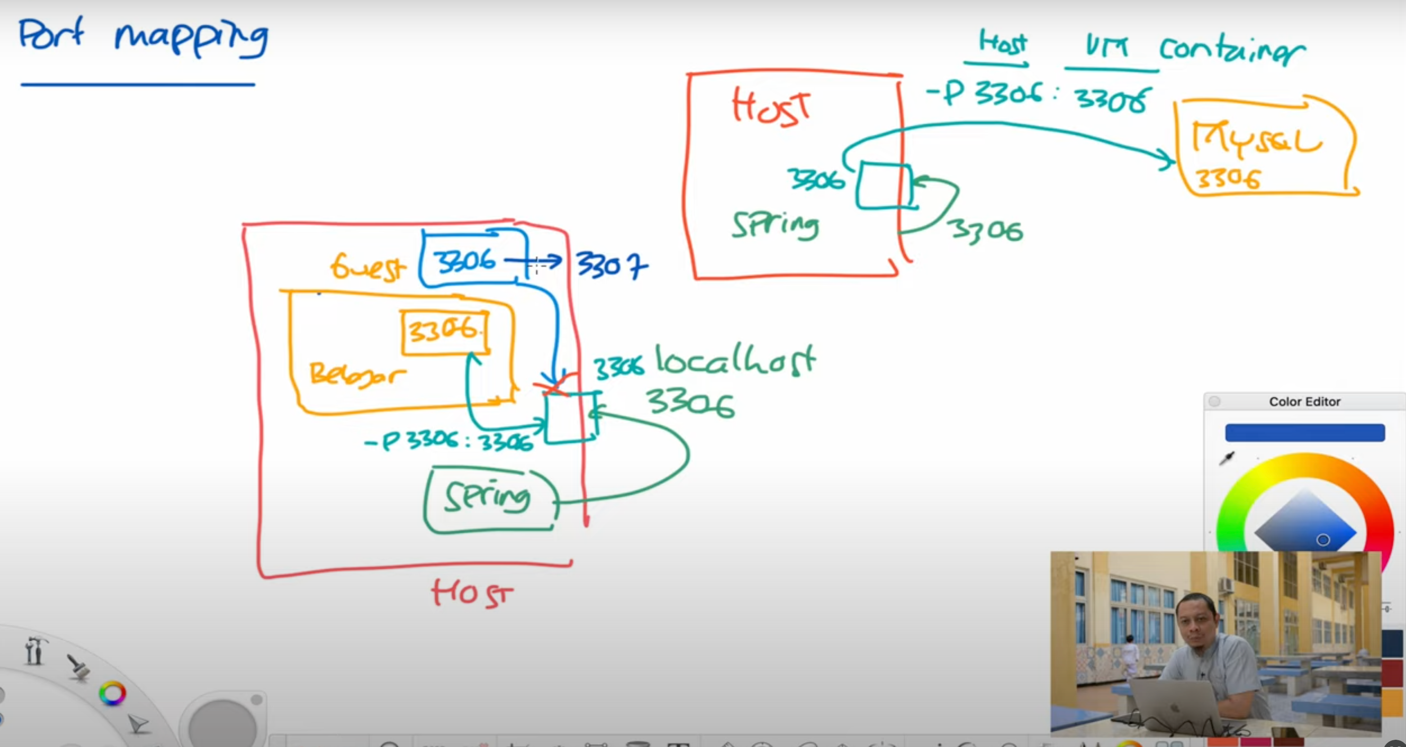 Port mapping
Host VM container
-P 3306 : 3306
HOST
MySQL
3306
3306
Spring
3306
Guest
3306
3307
3306
Belajar
3306 localhost
3306
-P 3306 : 3306
Spring
HOST
Color Editor